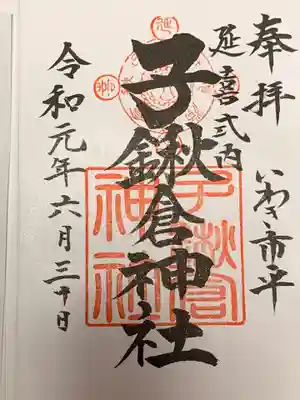 奉拝
いわき市平
延喜式内
子鍬倉神社
令和元年六月三十日
子鍬倉
神社